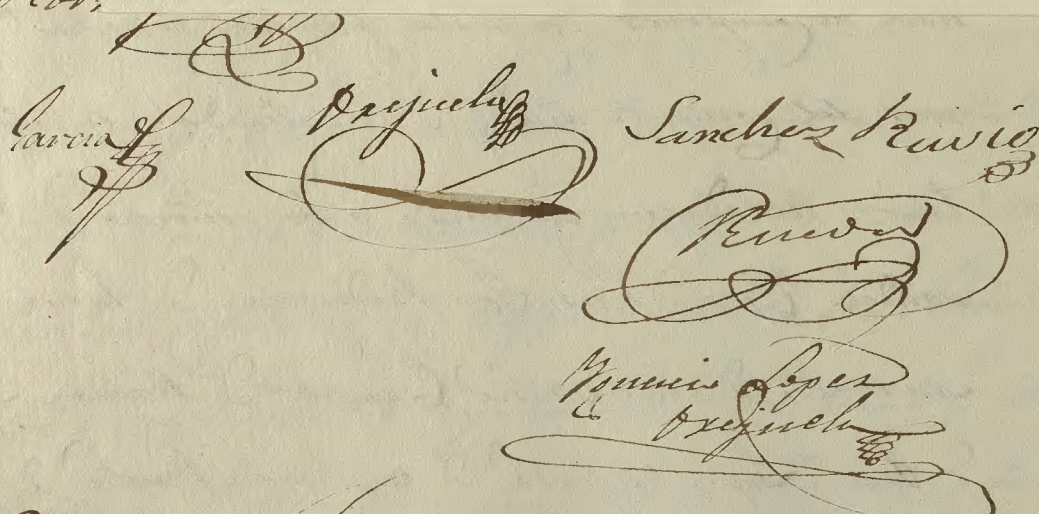 Garcia
Orejuela
Sanchez Ruvio
Rueda
Lopez
Orejuela